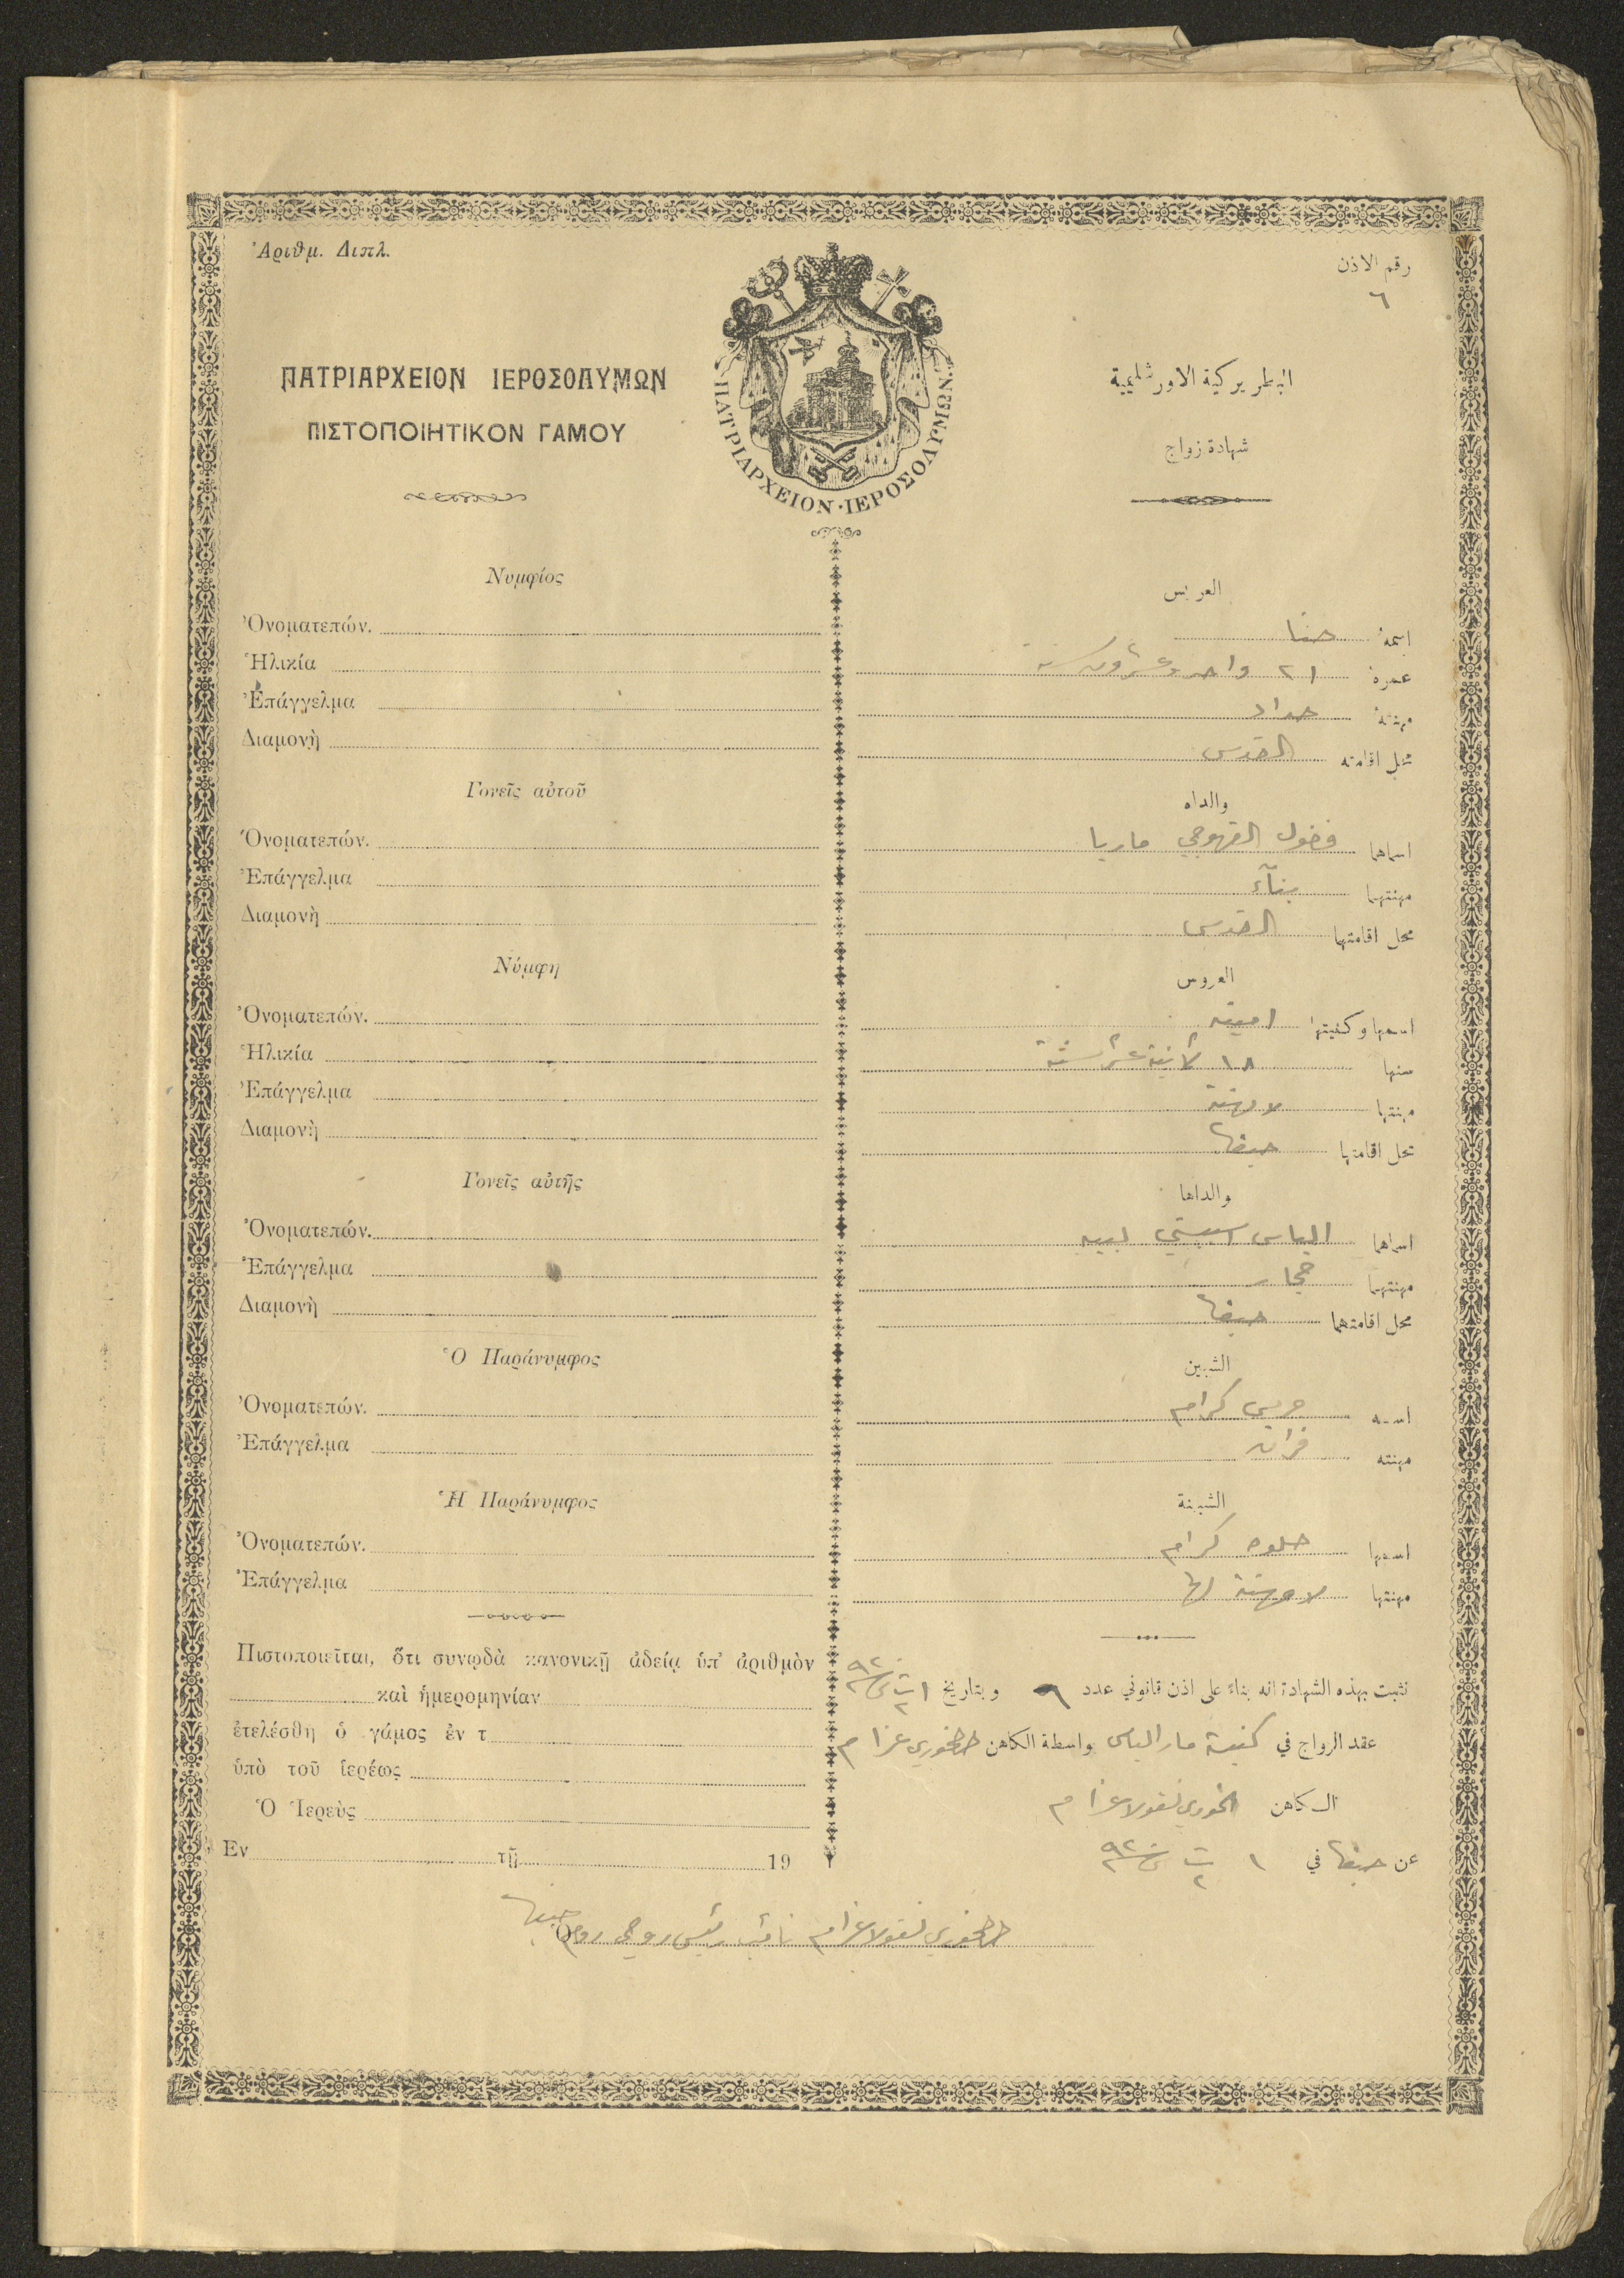 Ἀριθμ. Διπλ.
رقم الاذن
٦
ΠΑΤΡΙΑΡΧΕΙΟΝ ΙΕΡΟΣΟΛΥΜΩΝ
ΠΙΣΤΟΠΟΙΗΤΙΚΟΝ ΓΑΜΟΥ
ΠΑΤΡΙΑΡΧΕΙΟΝ · ΙΕΡΟΣΟΛΥΜΩΝ
البطريركية الاورشليمية
شهادة زواج
Νυμφίος
Ὀνοματεπών.
Ἡλικία
Ἐπάγγελμα
Διαμονὴ
Γονεῖς αὐτοῦ
Ὀνοματεπών.
Ἐπάγγελμα
Διαμονὴ
Νύμφη
Ὀνοματεπών.
Ἡλικία
Ἐπάγγελμα
Διαμονὴ
Γονεῖς αὐτῆς
Ὀνοματεπών.
Ἐπάγγελμα
Διαμονὴ
Ὁ Παράνυμφος
Ὀνοματεπών.
Ἐπάγγελμα
Ἡ Παράνυμφος
Ὀνοματεπών.
Ἐπάγγελμα
Πιστοποιεῖται, ὅτι συνῳδὰ κανονικῇ ἀδείᾳ ὑπ' ἀριθμὸν
καὶ ἡμερομηνίαν
ἐτελέσθη ὁ γάμος ἐν τ
ὑπὸ τοῦ ἱερέως
Ὁ Ἱερεὺς
Ἐν τῇ 19
العريس
اسمه حنا
عمره ٢١ واحد وعشرون سنة
مهنته حداد
محل اقامته القدس
والداه
اسماهما فضول القهوجي ماريا
مهنتهما بنآء
محل اقامتهما القدس
العروس
اسمها وكنيتها امينه
سنها ١٨ ثمانية عشر سنة
مهنتها لا مهنة
محل اقامتها حيفا
والداها
اسماهما الياس لبيبه
مهنتهما
محل اقامتهما حيفا
الشبين
اسمه جرجس كرام
مهنته فران
الشبينة
اسمها حلوه كرام
مهنتها لا مهنة لها
نثبت بهذه الشهادة انه بناءً على اذن قانوني عدد ٦ وبتاريخ ١ ت٢ سنة ٩٢٠
عقد الزواج في كنيسة مار الياس واسطة الكاهن الخوري عزام
الكاهن الخوري نقولا عزام
عن حيفا في ١ ت٢ سنة ٩٢٠
Ὁ الخوري نقولا عزام نائب رئيس روحي روم حيفا